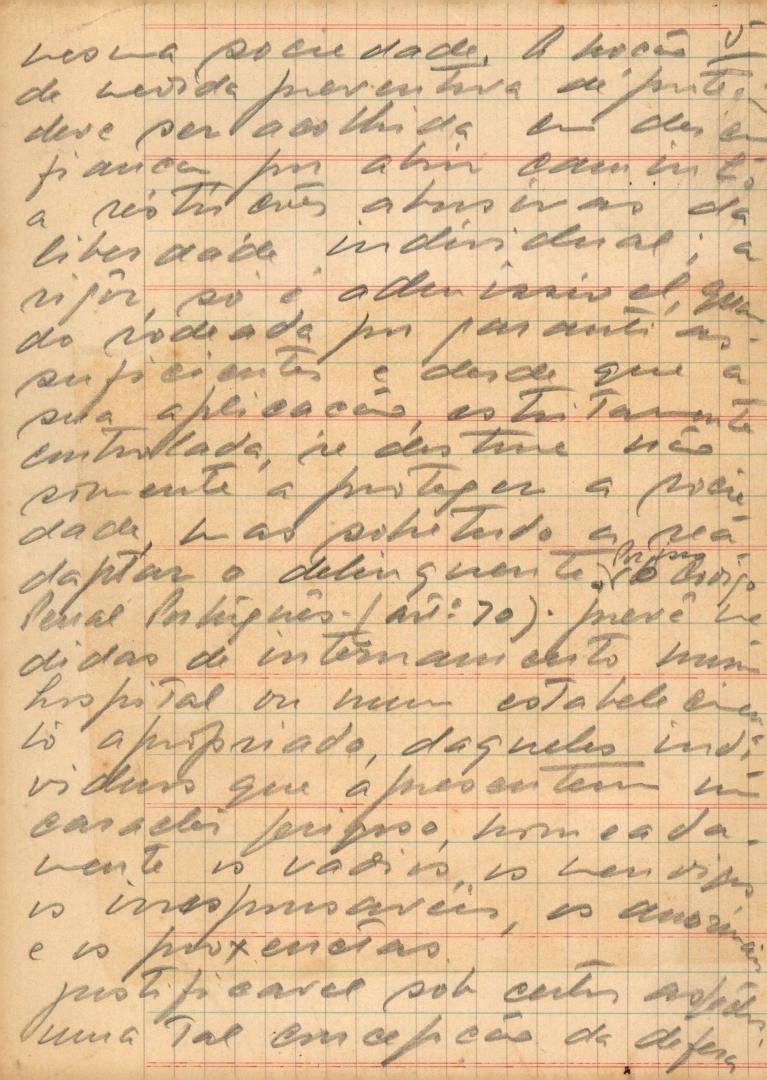 mesma sociedade. A noção V
de medida preventiva de prote-
deve ser acolhida em descon
fiança por abrir caminho
a restrições abusivas da
liberdade individual; a
rigôr, só é admissivel, quan
do rodeada por garanti as
suficientes e desde que a
sua aplicação, estritamente
controlada, se destine não
somente a proteger a socie
dade, mas sobretudo a rea-
daptar o delinquente. O Codigo
Penal Português (artº 70) prevê me
didas de internamento num
hospital ou num estabelecimen
to apropriado, daqueles indi
viduos que apresentem um
caracter perigoso, nomeada-
mente os vadios, os mendigos
os irresponsaveis, os anormais
e os proxenetas.
justificavel sob certos aspectos,
uma tal concepção da defesa